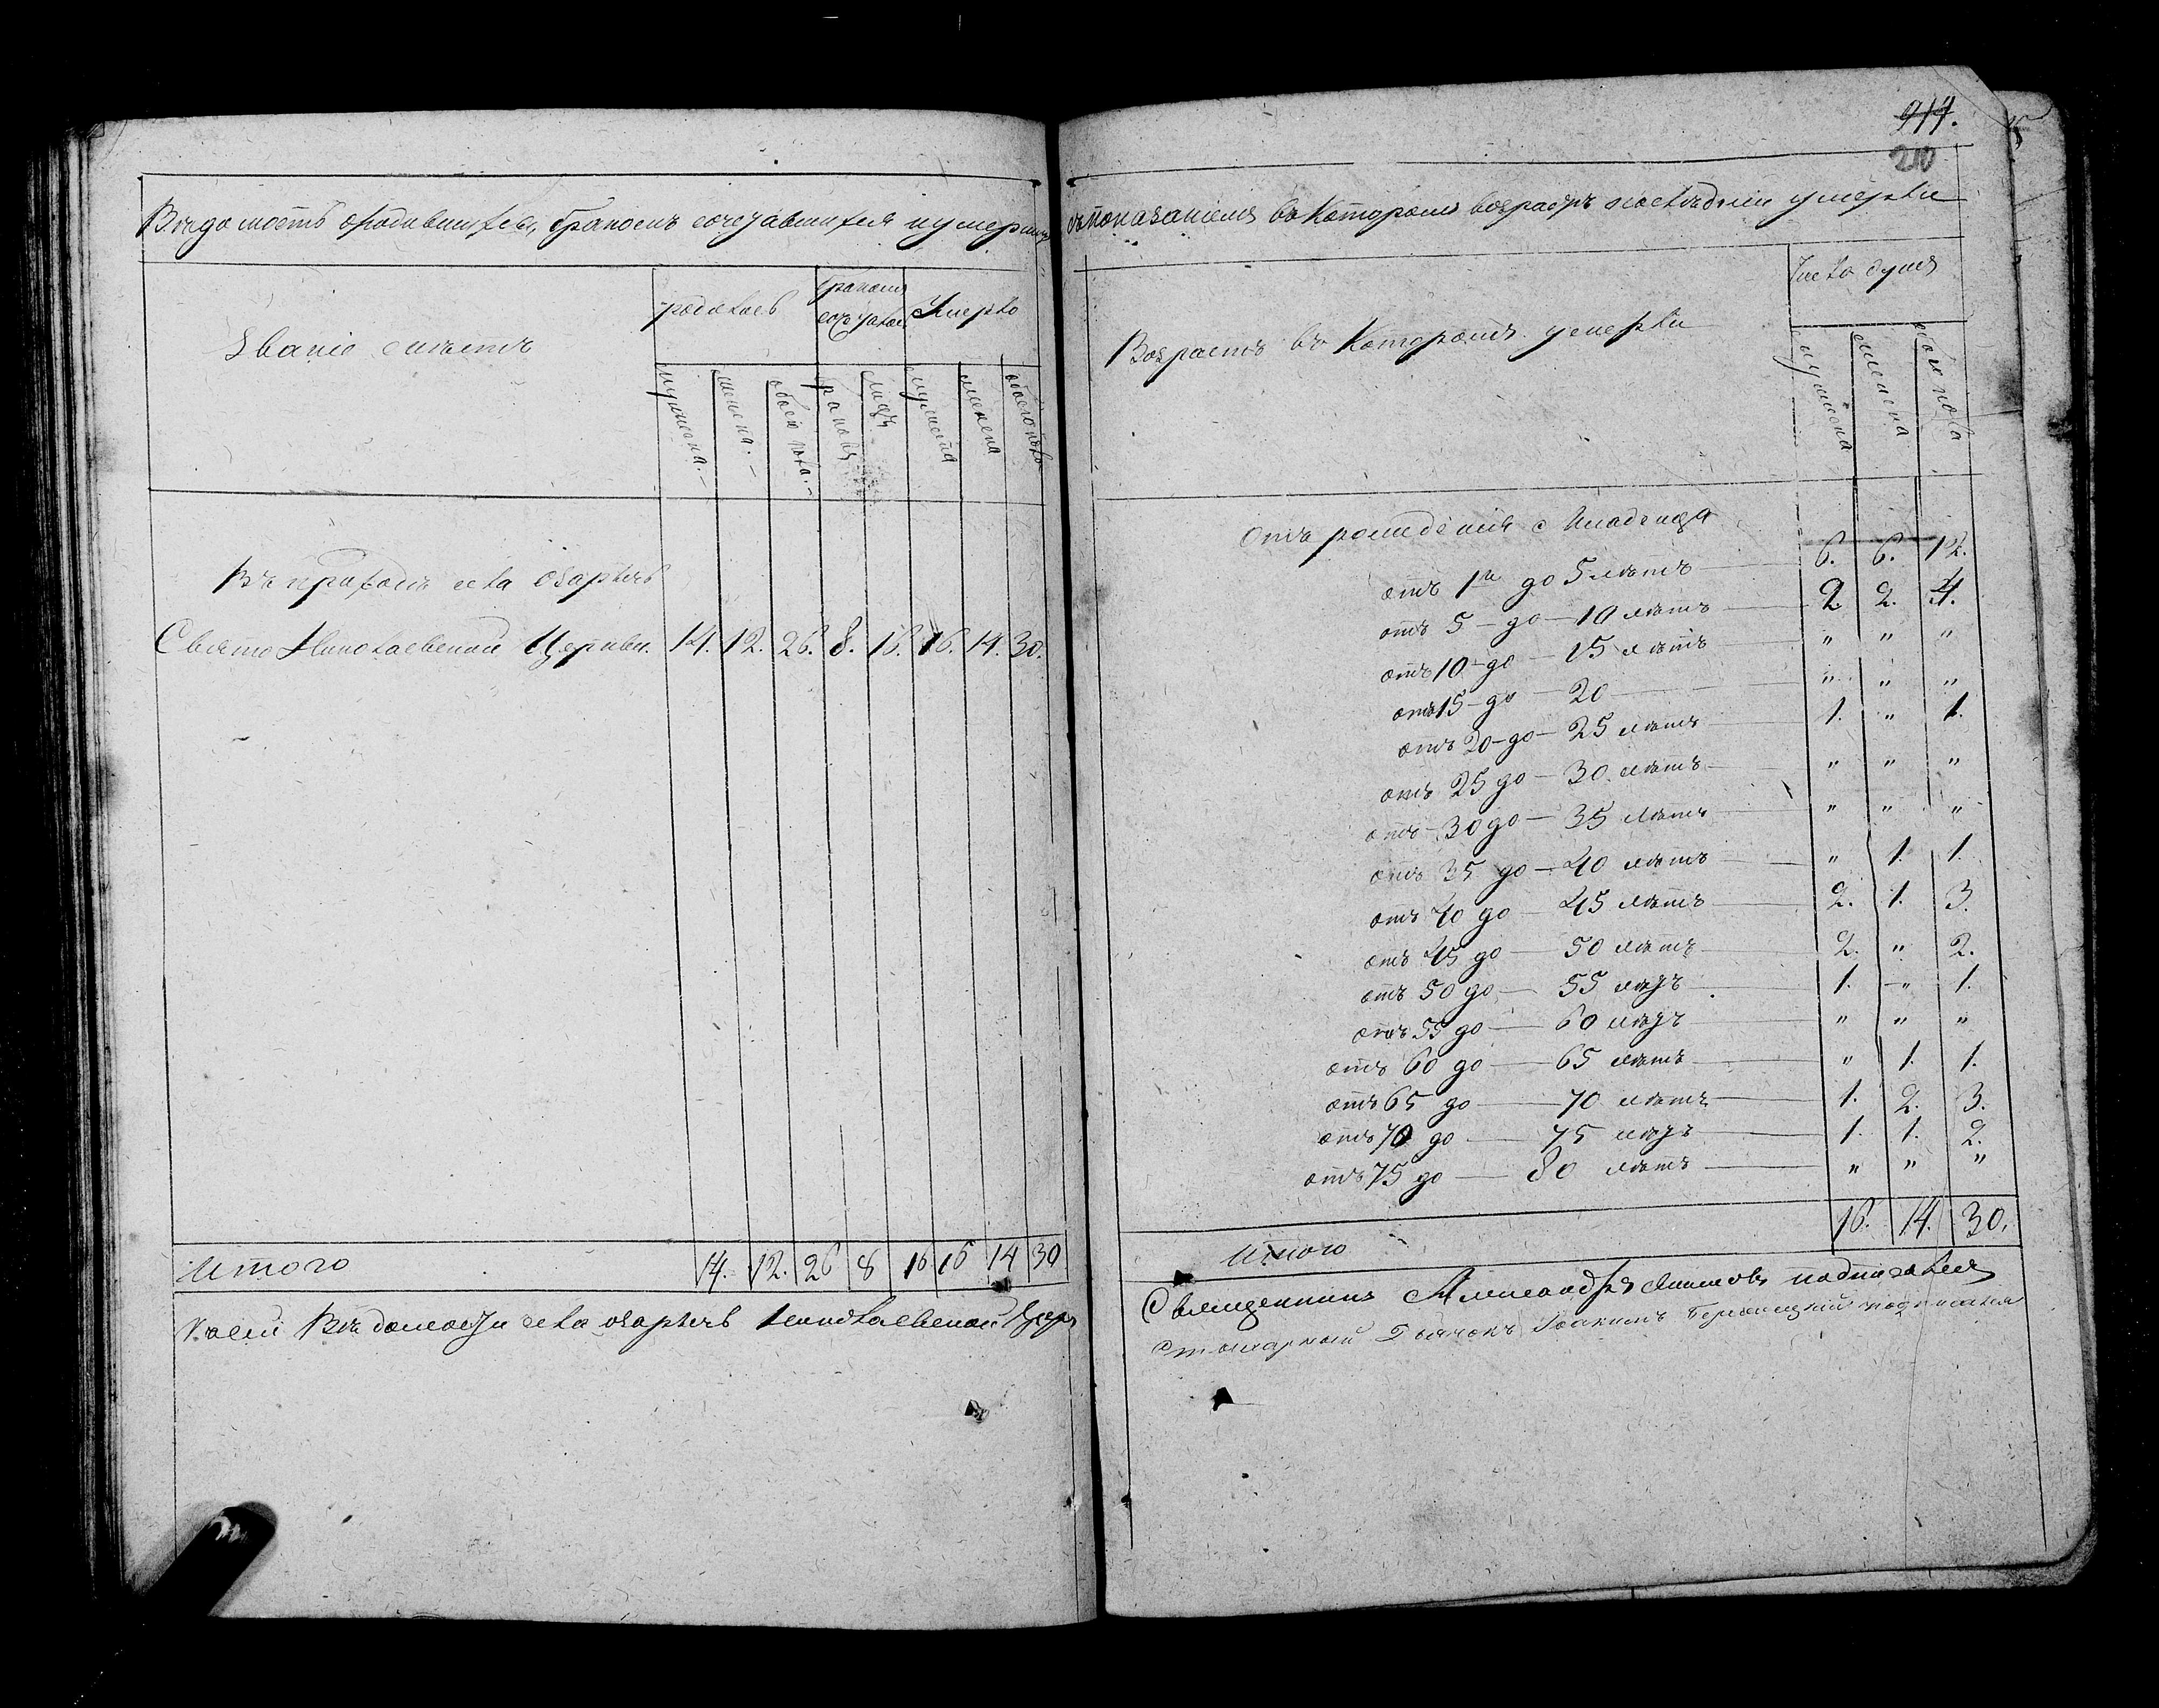 914.
210
Вѣдомость о родившихся, бракомъ сочетавшихся и умершихъ
съ показаніемъ въ которомъ возрастѣ послѣдніе умерли
Званіе мѣстъ
родилось
бракомъ сочеталось
Умерло
мужеска.
женска.
обоего пола.
браковъ
лицъ
мужеска
женска
обоего пола
Въ приходѣ села
Свято Николаевской Церкви. 14. 12. 26. 8. 16. 16. 14. 30.
Итого 14. 12. 26 8 16 16 14 30
Къ сей Вѣдомости села Николаевской Церк
Возрастъ въ которомъ умерли
Число душъ
мужеска
женска
обоего пола
Отъ рожденія младенца
отъ 1го до 5 лѣтъ 6. 6. 12.
отъ 5 до 10 лѣтъ 2. 2. 4.
отъ 10 до 15 лѣтъ " " "
отъ 15 до 20 " " "
отъ 20 до 25 лѣтъ 1. " 1.
отъ 25 до 30 лѣтъ " " "
отъ 30 до 35 лѣтъ " " "
отъ 35 до 40 лѣтъ " 1. 1.
отъ 40 до 45 лѣтъ 2. 1. 3.
отъ 45 до 50 лѣтъ 2. " 2.
отъ 50 до 55 лѣтъ 1. " 1.
отъ 55 до 60 лѣтъ " " "
отъ 60 до 65 лѣтъ " 1. 1.
отъ 65 до 70 лѣтъ 1. 2. 3.
отъ 70 до 75 лѣтъ 1. 1. 2.
отъ 75 до 80 лѣтъ " " "
Итого 16. 14. 30.
Священникъ Александръ подписался
Дьячокъ Іоакимъ подписался